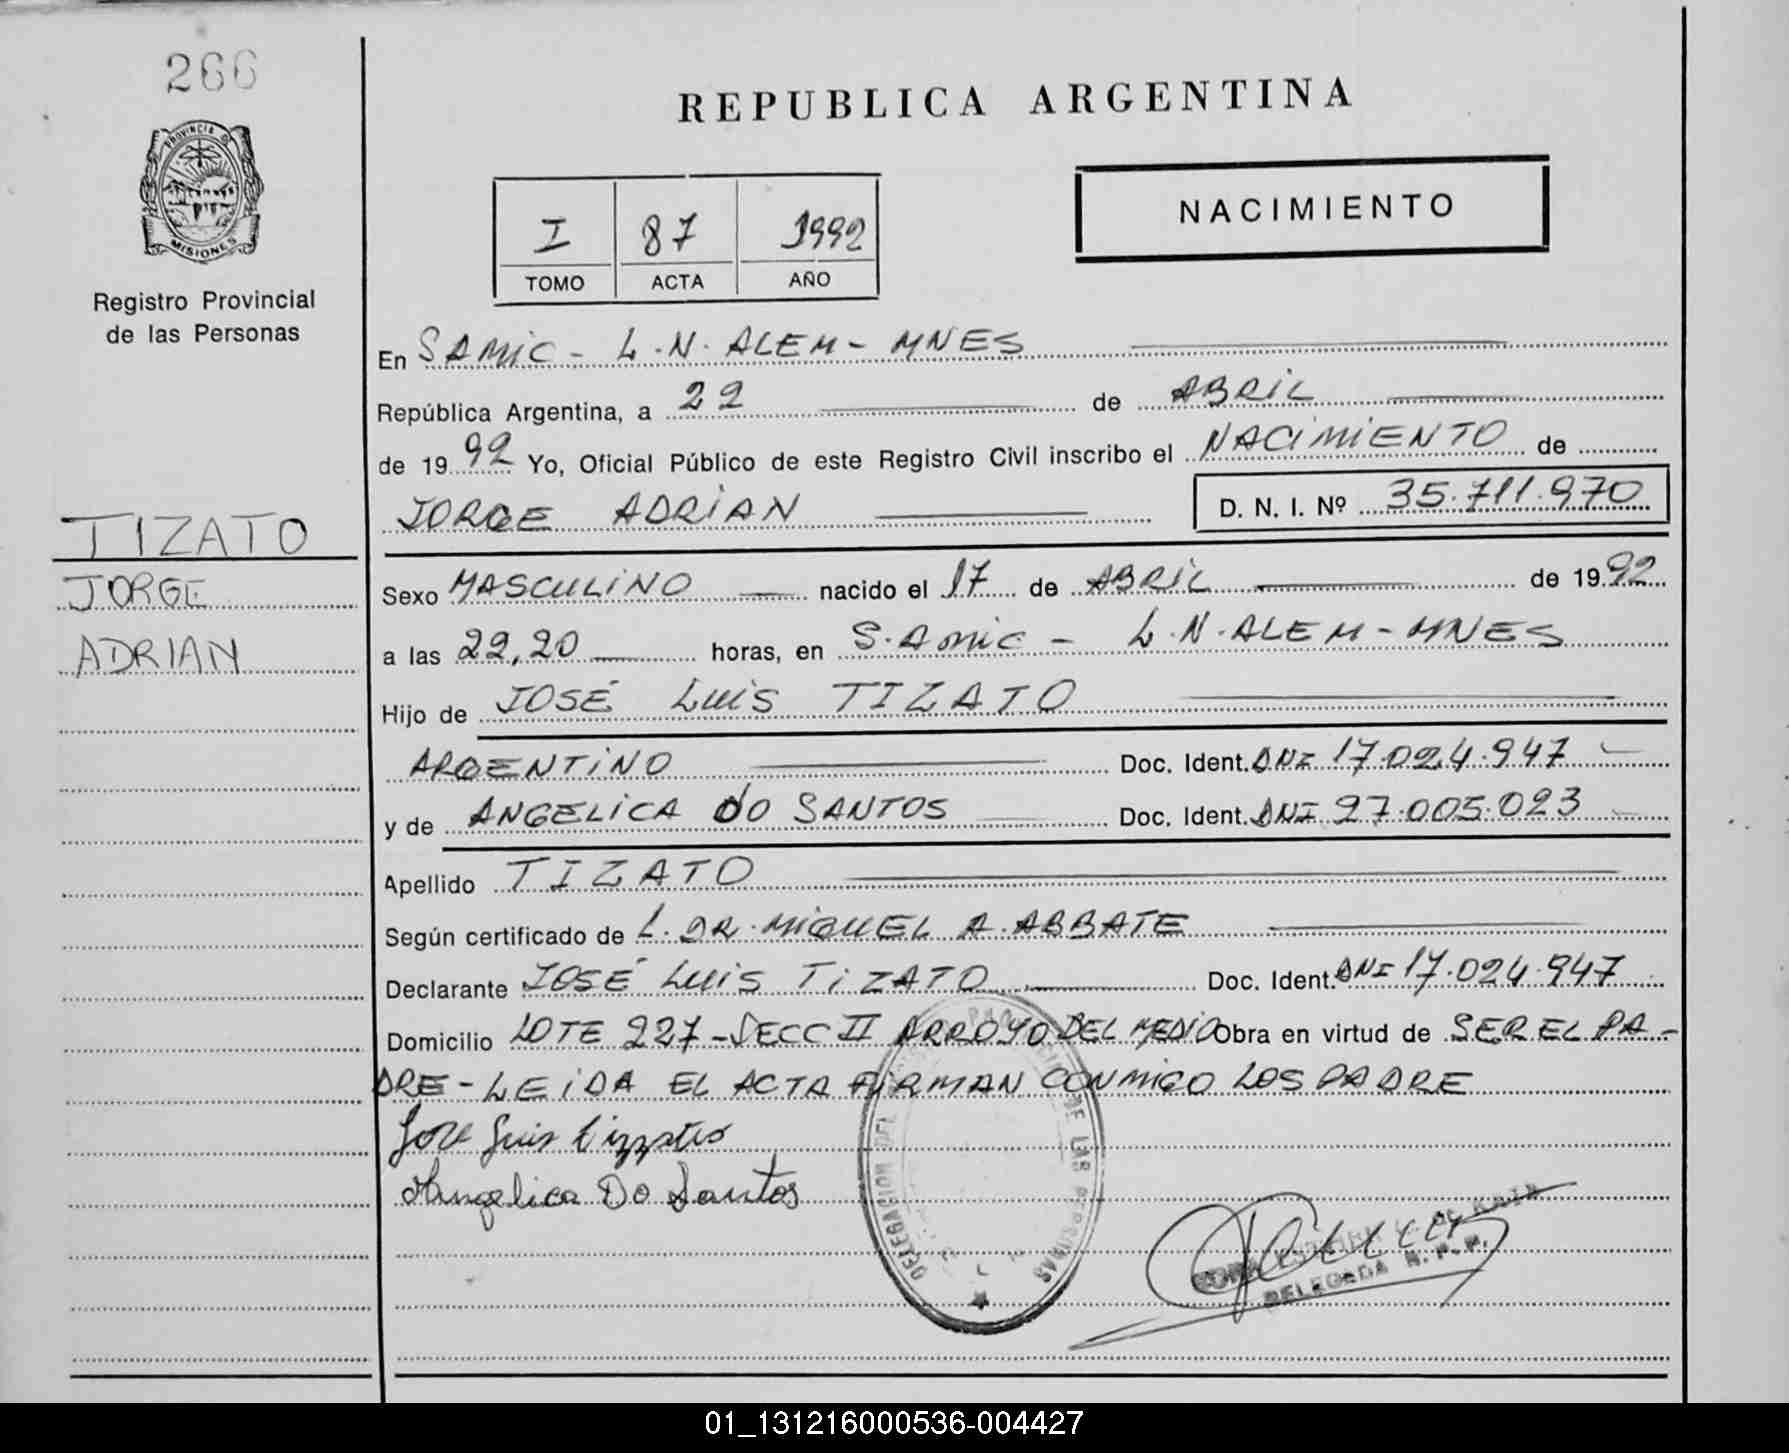 266
PROVINCIA DE
MISIONES
Registro Provincial
de las Personas
TIZATO
JORGE
ADRIAN
REPUBLICA ARGENTINA
I 87 1992
TOMO ACTA AÑO
NACIMIENTO
En SAMIC - L.N. ALEM - MNES
República Argentina, a 22 de ABRIL
de 1992 Yo, Oficial Público de este Registro Civil inscribo el NACIMIENTO de
JORGE ADRIAN D. N. I. Nº 35.711.970
Sexo MASCULINO nacido el 17 de ABRIL de 1992
a las 22,20 horas, en S.Amic - L.N.ALEM - MNES
Hijo de JOSÉ LUIS TIZATO
ARGENTINO Doc. Ident. DNI 17.024.947
y de ANGELICA dO SANTOS Doc. Ident. DNI 27.005.023
Apellido TIZATO
Según certificado de L. DR. MIGUEL A. ABBATE
Declarante JOSÉ LUIS TIZATO Doc. Ident. DNI 17.024.947
Domicilio LOTE 227 - SECC II ARROYO DEL MEDIO Obra en virtud de SER EL PA-
DRE - LEIDA EL ACTA FIRMAN CONMIGO LOS PADRE
Jose Luis Tizzato
Angelica Do Santos
DELEGACION DEL DE LAS PERSONAS
DELEGADA R.P.P.
01_131216000536-004427